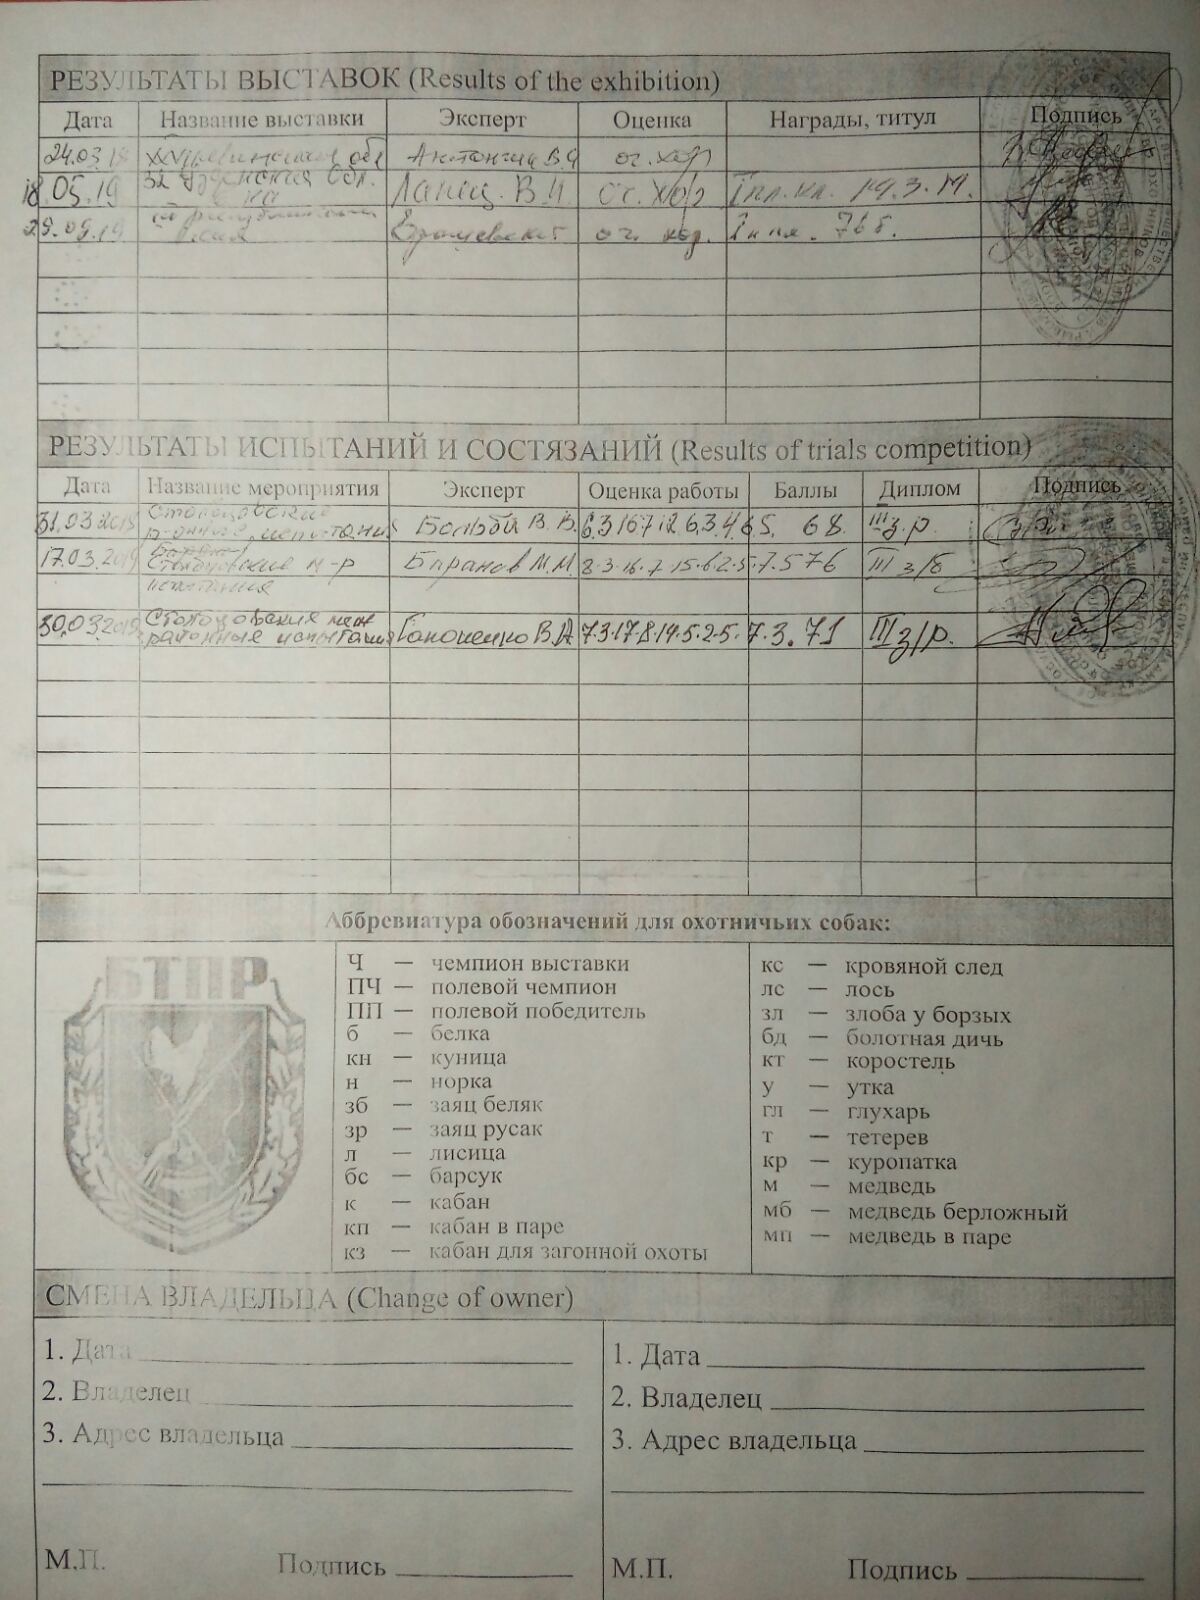 РЕЗУЛЬТАТЫ ВЫСТАВОК (Results of the exhibition)
Дата Название выставки Эксперт Оценка Награды, титул Подпись
24.03 оч. хор
18.05.19 обл. Ланец. В.И оч. хор I пл. кл.
оч. хор. 76б.
РЕЗУЛЬТАТЫ ИСПЫТАНИЙ И СОСТЯЗАНИЙ (Results of trials competition)
Дата Название мероприятия Эксперт Оценка работы Баллы Диплом Подпись
31.03 В. В. 68 III з.р.
17.03.2019 Столбцовские м-р М.М. 8-3-16-7-15-6-2-5-7.5 76 III з/б
испытания
30.03.2019 Столбцовские меж
районные испытания В.А 7.3.17.8.14.5.2.5.7.3. 71 III з/р.
Аббревиатура обозначений для охотничьих собак:
БТПР
Ч — чемпион выставки
ПЧ — полевой чемпион
ПП — полевой победитель
б — белка
кн — куница
н — норка
зб — заяц беляк
зр — заяц русак
л — лисица
бс — барсук
к — кабан
кп — кабан в паре
кз — кабан для загонной охоты
кс — кровяной след
лс — лось
зл — злоба у борзых
бд — болотная дичь
кт — коростель
у — утка
гл — глухарь
т — тетерев
кр — куропатка
м — медведь
мб — медведь берложный
мп — медведь в паре
СМЕНА ВЛАДЕЛЬЦА (Change of owner)
1. Дата
2. Владелец
3. Адрес владельца
М.П. Подпись
1. Дата
2. Владелец
3. Адрес владельца
М.П. Подпись